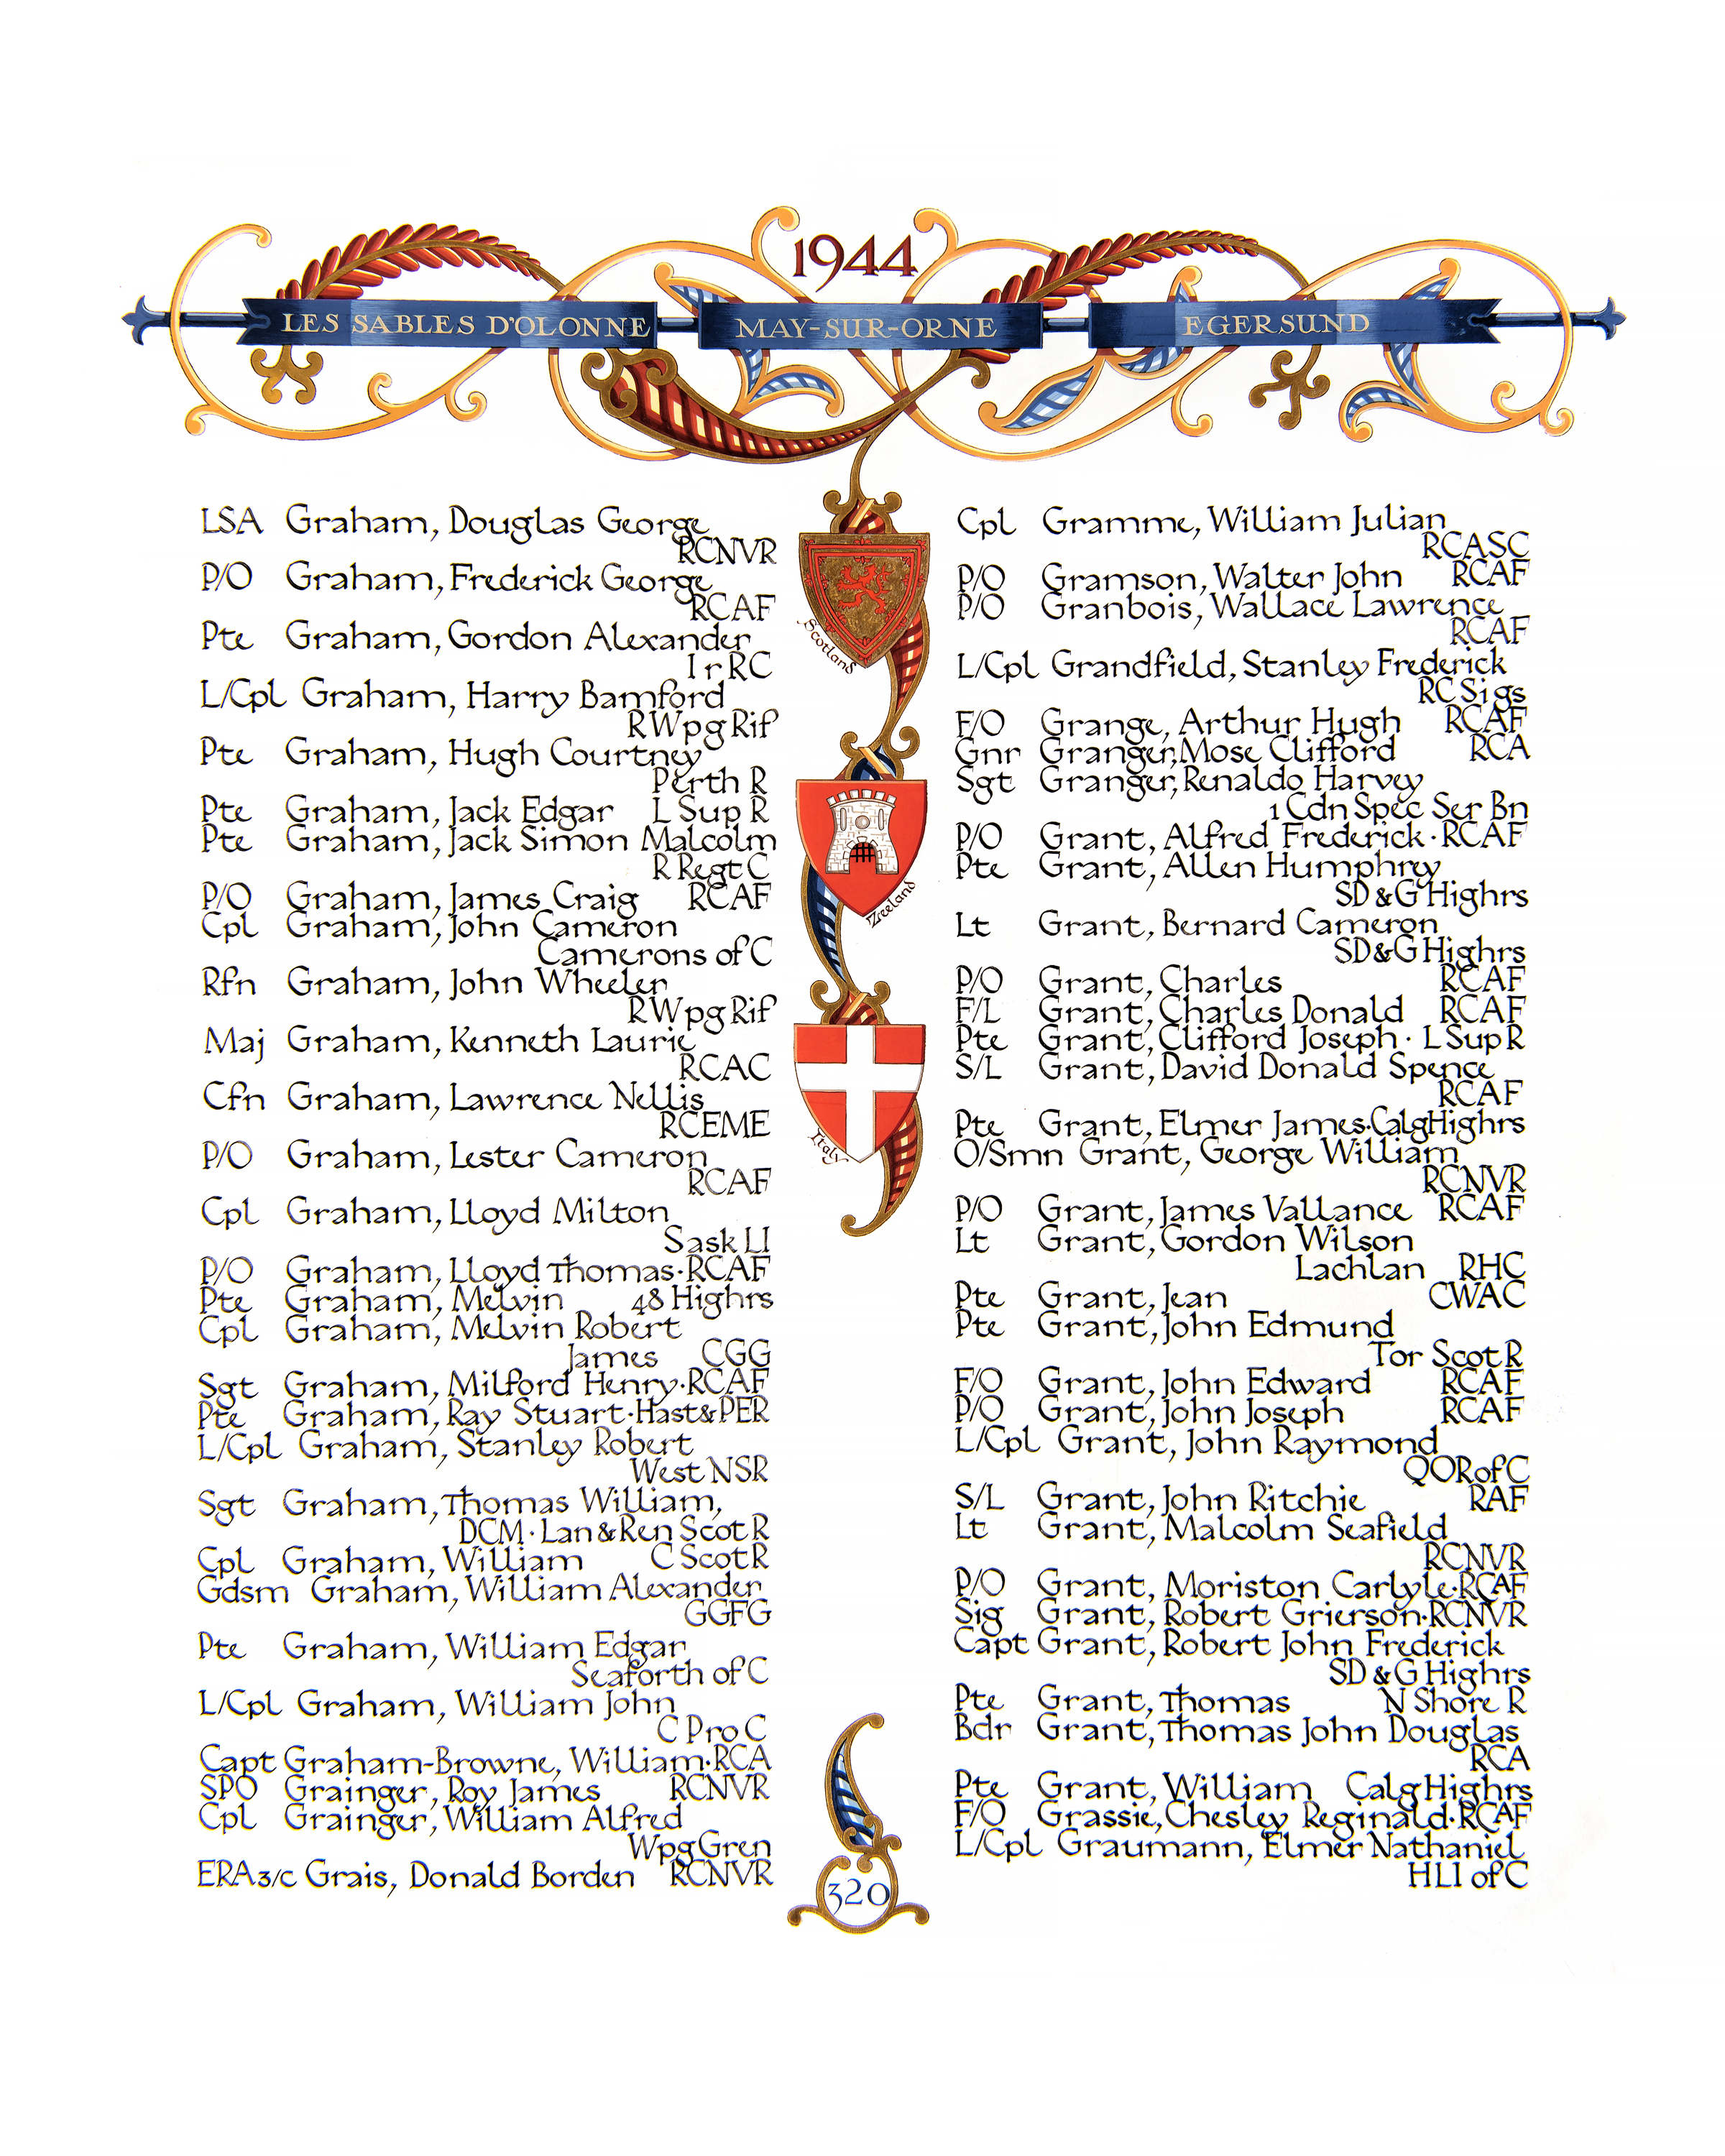 1944
LES SABLES D'OLONNE MAY-SUR-ORNE EGERSUND
LSA Graham, Douglas George
RCNVR
P/O Graham, Frederick George
RCAF
Pte Graham, Gordon Alexander
Ir RC
L/Cpl Graham, Harry Bamford
R Wpg Rif
Pte Graham, Hugh Courtney
Perth R
Pte Graham, Jack Edgar L Sup R
Pte Graham, Jack Simon Malcolm
R Regt C
P/O Graham, James Craig RCAF
Cpl Graham, John Cameron
Camerons of C
Rfn Graham, John Wheeler
R Wpg Rif
Maj Graham, Kenneth Laurie
RCAC
Cfn Graham, Lawrence Nellis
RCEME
P/O Graham, Lester Cameron
RCAF
Cpl Graham, Lloyd Milton
Sask LI
P/O Graham, Lloyd Thomas·RCAF
Pte Graham, Melvin 48 Highrs
Cpl Graham, Melvin Robert
James CGG
Sgt Graham, Milford Henry·RCAF
Pte Graham, Ray Stuart·Hast&PER
L/Cpl Graham, Stanley Robert
West NSR
Sgt Graham, Thomas William,
DCM·Lan & Ren Scot R
Cpl Graham, William C Scot R
Gdsm Graham, William Alexander
GGFG
Pte Graham, William Edgar
Seaforth of C
L/Cpl Graham, William John
C Pro C
Capt Graham-Browne, William·RCA
SPO Grainger, Roy James RCNVR
Cpl Grainger, William Alfred
Wpg Gren
ERA3/c Grais, Donald Borden RCNVR
Scotland
Zeeland
Italy
Cpl Gramme, William Julian
RCASC
P/O Gramson, Walter John RCAF
P/O Granbois, Wallace Lawrence
RCAF
L/Cpl Grandfield, Stanley Frederick
RC Sigs
F/O Grange, Arthur Hugh RCAF
Gnr Granger, Mose Clifford RCA
Sgt Granger, Renaldo Harvey
1 Cdn Spec Ser Bn
P/O Grant, Alfred Frederick·RCAF
Pte Grant, Allen Humphrey
SD & G Highrs
Lt Grant, Bernard Cameron
SD & G Highrs
P/O Grant, Charles RCAF
F/L Grant, Charles Donald RCAF
Pte Grant, Clifford Joseph· L Sup R
S/L Grant, David Donald Spence
RCAF
Pte Grant, Elmer James·Calg Highrs
O/Smn Grant, George William
RCNVR
P/O Grant, James Vallance RCAF
Lt Grant, Gordon Wilson
Lachlan RHC
Pte Grant, Jean CWAC
Pte Grant, John Edmund
Tor Scot R
F/O Grant, John Edward RCAF
P/O Grant, John Joseph RCAF
L/Cpl Grant, John Raymond
QOR of C
S/L Grant, John Ritchie RAF
Lt Grant, Malcolm Seafield
RCNVR
P/O Grant, Moriston Carlyle·RCAF
Sig Grant, Robert Grierson·RCNVR
Capt Grant, Robert John Frederick
SD & G Highrs
Pte Grant, Thomas N Shore R
Bdr Grant, Thomas John Douglas
RCA
Pte Grant, William Calg Highrs
F/O Grassie, Chesley Reginald·RCAF
L/Cpl Graumann, Elmer Nathaniel
HLI of C
320